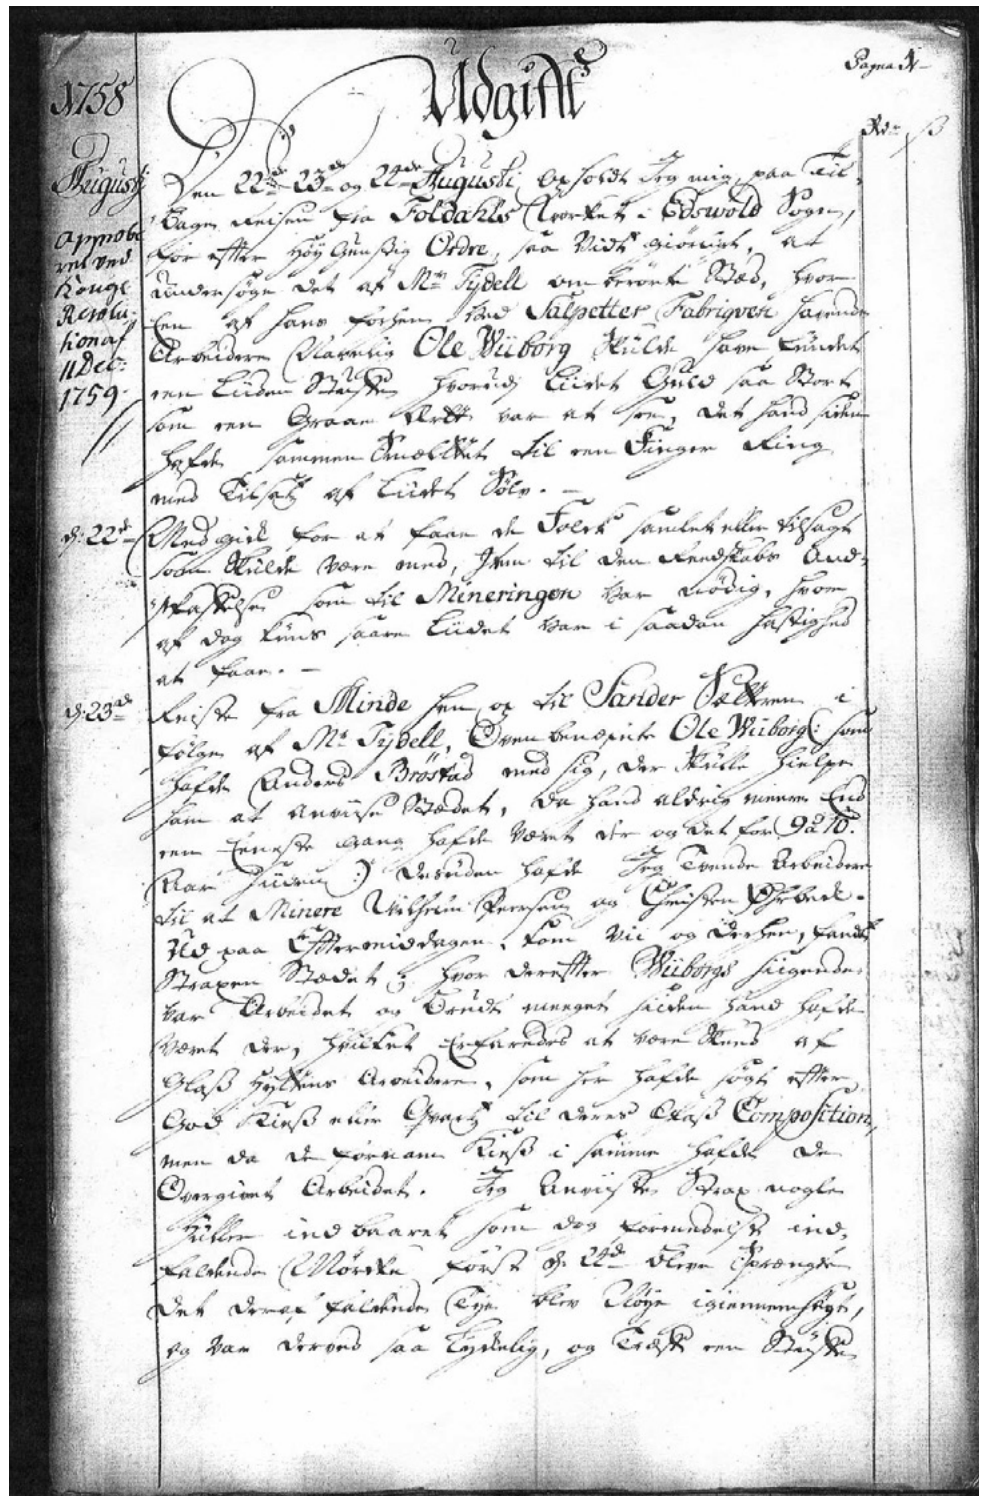 Pagina 1
1758
Udgifft
Rdr ß
Augusti
Approbe
ret ved
Kongl
Resolu-
tion af
11 Dec:
1759.
Den 22de 23de og 24de Augusti, opholdt Jeg mig paa Til-
bage Reisen fra Foldahls Verket i Edswold Sogn,
for efter Høy Gunstig Ordre, saa vidt giørligt, at
undersøge det af Mr Tydell om berørte Stæd, hvor
Een af hans forhen ved Salpetter Fabriqven havende
Arbeidere Navnlig Ole Wiiborg skulde have fundet
een liiden Steuffe hvorudj liidet Guld saa Stort
som een Graae Ært var at see, det hand siden
hafde sammen Smæltet til een Finger Ring
med Tilsatz af liidet Sølv.
d: 22de Medgik for at faae de Folck samlet eller tilsagt
som skulde være med, Item til den Reedskabs And-
skaffelse som til Mineringen var nødig, hvor
af dog kuns saare liidet var i saadan hastighed
at faae.
d: 23de Reiste fra Minde hen op til Sander Sætteren i
følge af Mr Tydell, Ovenbenæfnte Ole Wiiborg (: som
hafde Anders Brøstad med sig, der skulle hielpe
ham at anviise Stædet, da hand aldrig meere End
een Eeneste gang hafde været der og det for 9 a 10.
Aar siiden :) desuden hafde Jeg Tvende Arbeidere
til at Minere Wilhelm Peersen og Christen
Ud paa Efftermiddagen, kom vii og derhen, fandt
Straxen Stædet; hvor derefter Wiiborgs siigende
var Arbeidet og Brudt meeget siiden hand hafde
været der, hvilket Erfaredes at være skeed af
Glaß Hyttens Arbeidere, som her hafde søgt efter
God Kieß eller Qvartz til deres Glaß Composition,
men da de fornam Kieß i samme hafde de
Overgivet Arbeidet. Jeg Anviiste Strax nogle
Huller ind baaret som dog formedelst ind-
faldende Mørcke først d: 24de bleve Sprængte
det deraf faldende Tye blev Nøye igiennemsøgt,
og var derved saa Lyckelig, og Træfte een Steuffe